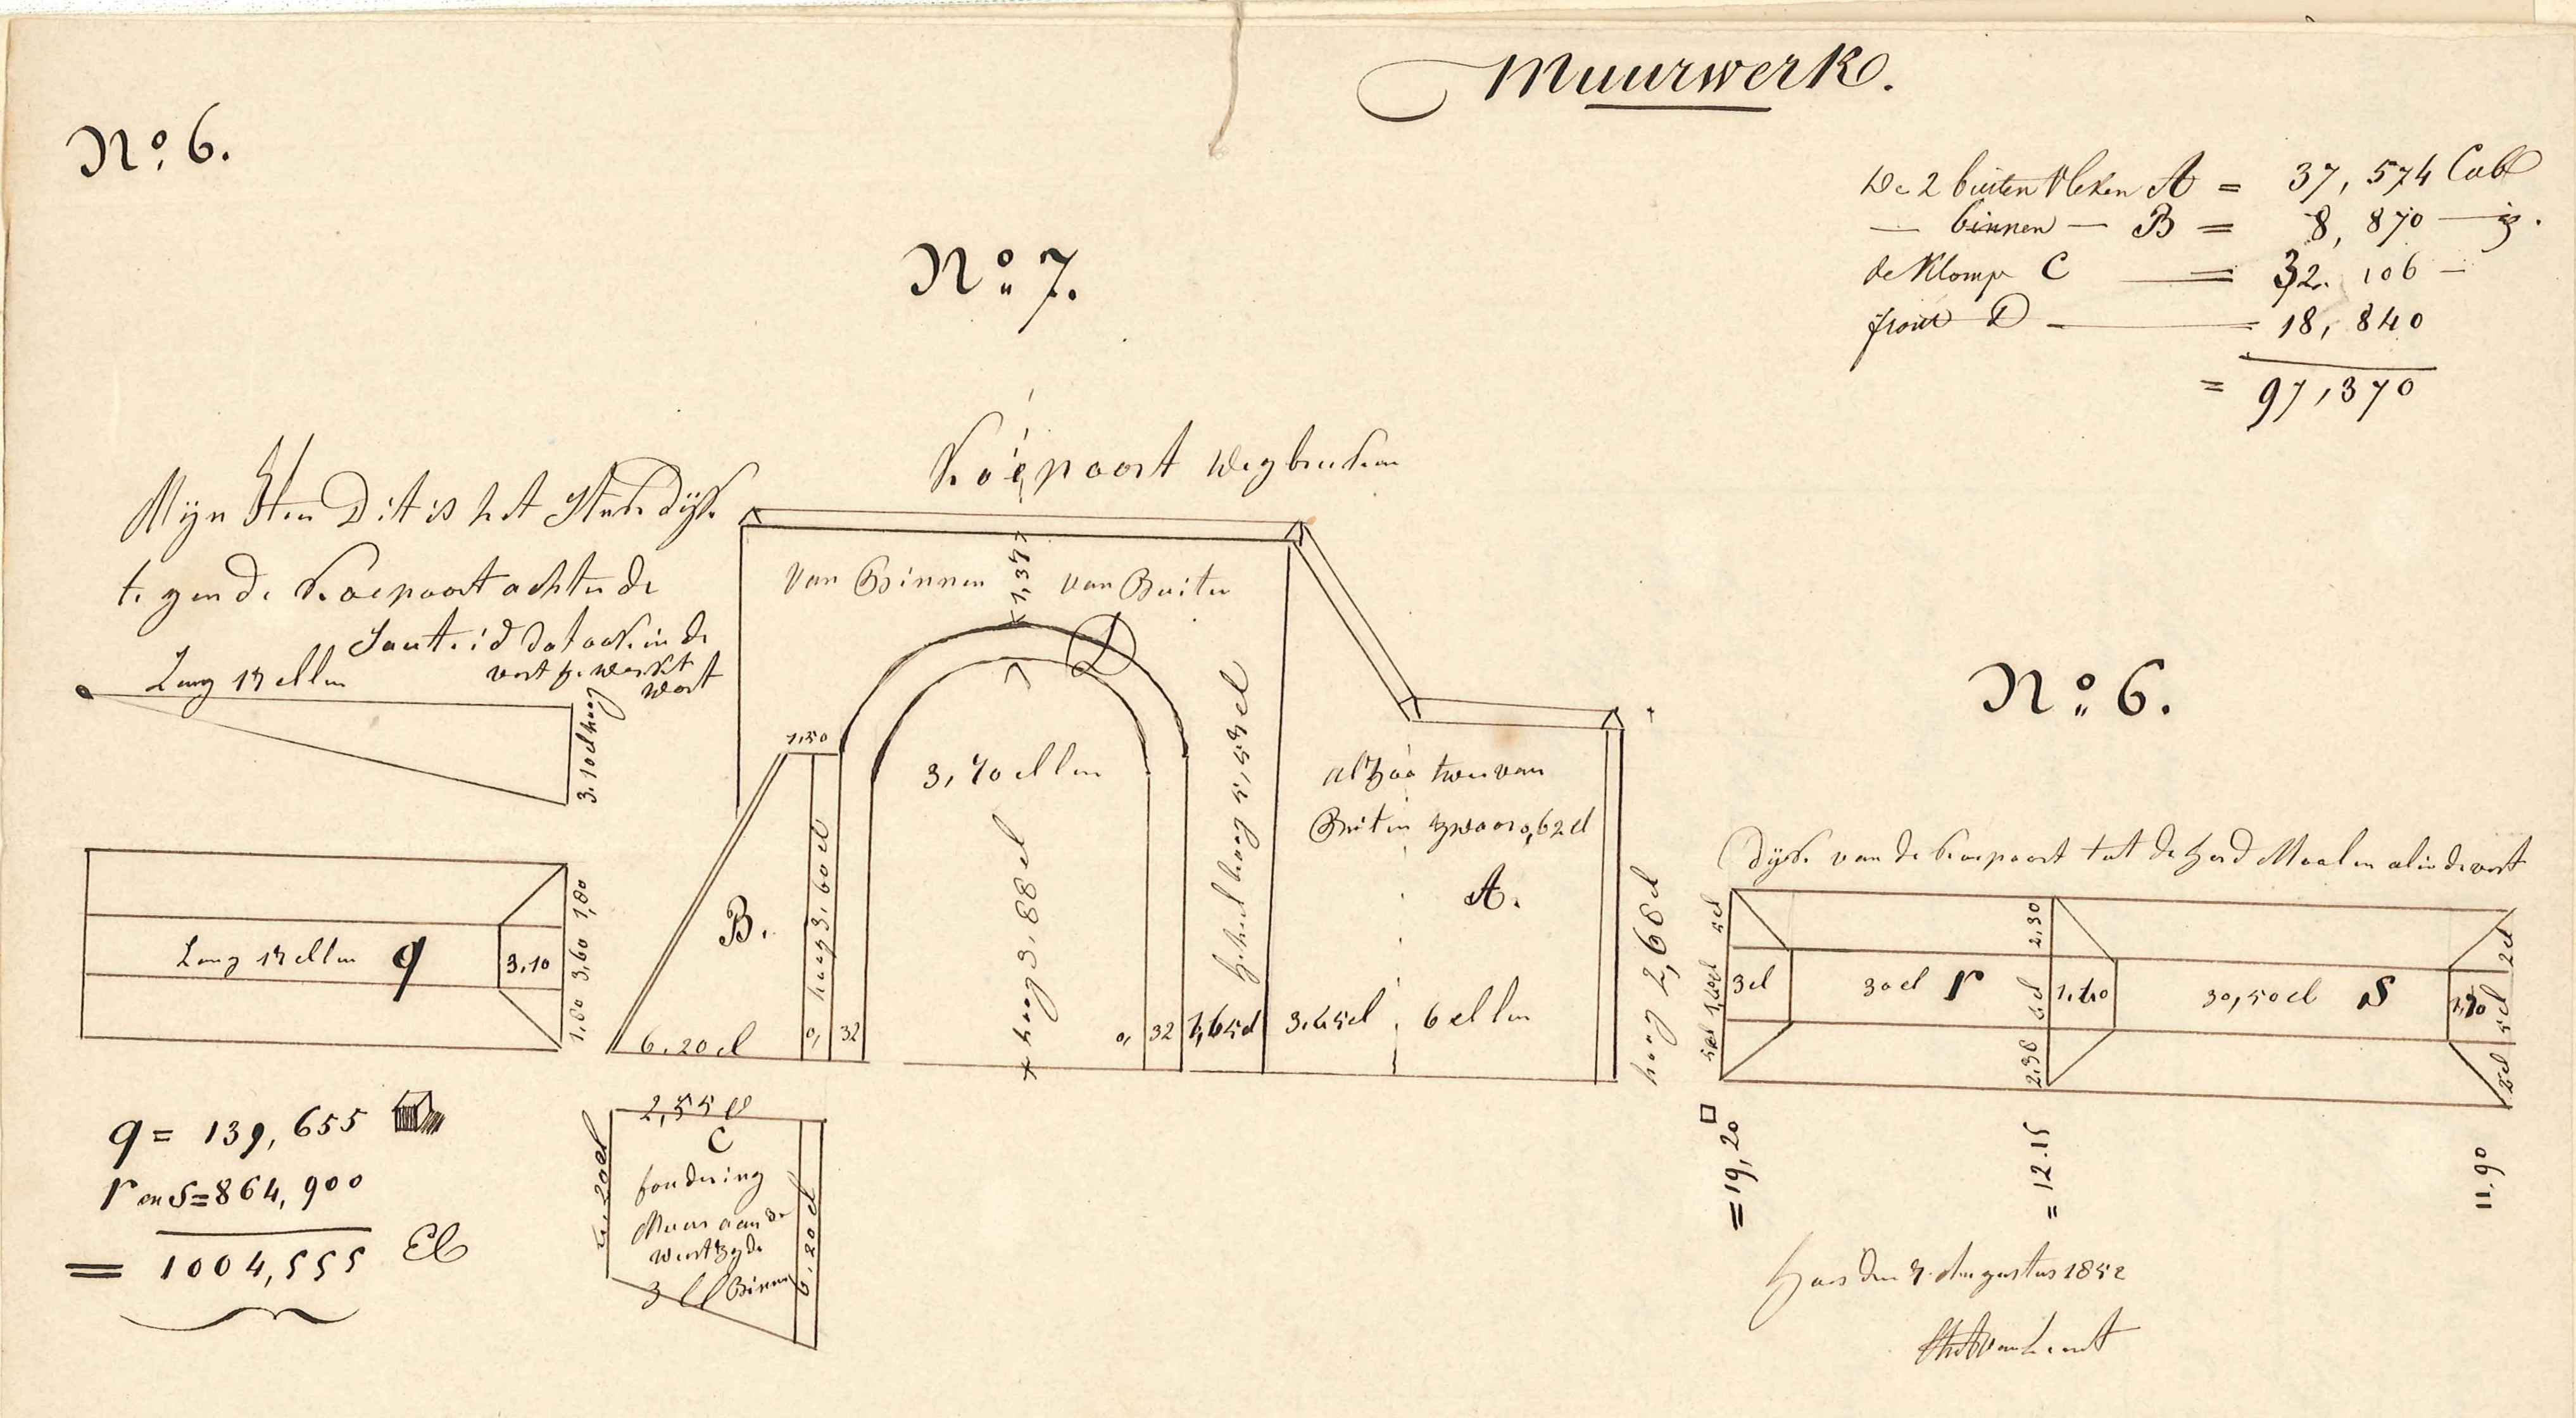 Muurwerk.
N° 6.
De 2 buiten vleken A = 37,574 Cub
— binnen — B = 8,870 —
de Klomp C = 32.106 —
front D = 18,840
= 97,370
N° 7.
Koepoort wegbreeken
Mijn Heer Dit is het Stuk dijk
tegen de Koepoort achter de
dat ook in de
vest gewerkt
wort
Lang 17 ellen
3.10 el hoog
van Binnen
1,37
van Buiten
D
1,50
3,70 ellen
hoog 3,60 el
hoog 3,88 el
geheel hoog 5,57 el
B.
6.20 el
0,32
0,32
1,65 el
3.65 el
6 ellen
alzoo twee van
Buiten zwaar 0,62 el
A.
hoog 2,68 el
Lang 17 ellen q
3,10
1,80
3,60
1,80
q = 139,655
r en S = 864,900
= 1004,555 El
2,55 el
C
fondering
Muur aan de
westzyde
3 el Binnen
6,20 el
N° 6.
Dijk van de koepoort tot de Moolen al in de vest
5 el
3 el
30 el r
2,30
6 el
2.30
1.10
30,50 el S
2 el
1,70
5 el
2 el
= 19,20
= 12.15
11.90
den 7 Augustus 1852